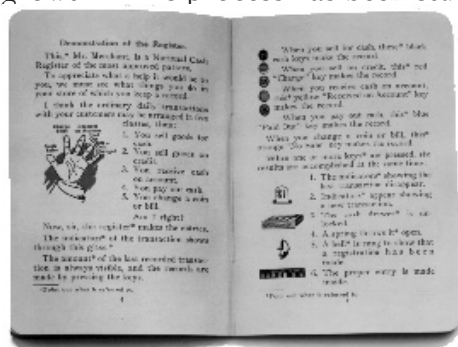 Demonstration of the Register.
This,* Mr. Merchant, is a National Cash
Register of the most approved pattern.
To appreciate what a help it would be to
you, we must see what things you do in
your store of which you keep a record.
I think the ordinary daily transactions
with your customers may be arranged in five
classes, thus:
1. You sell goods for
cash.
2. You sell goods on
credit.
3. You receive cash
on account.
4. You pay out cash.
5. You change a coin
or bill.
Am I right?
Now, sir, the register* makes the entries.
The indication* of the transaction shows
through this glass.*
The amount* of the last recorded transac-
tion is always visible, and the records are
made by pressing the keys.
*Point out what is referred to.
4
When you sell for cash, these* black
cash keys make the record.
When you sell on credit, this* red
"Charge" key makes the record.
When you receive cash on account,
this* yellow "Received on Account" key
makes the record.
When you pay out cash, this* blue
"Paid Out" key makes the record.
When you change a coin or bill, this*
orange "No Sale" key makes the record.
When one or more keys* are pressed, the
results are accomplished at the same time.
1. The indicators* showing the
last transaction disappear.
2. Indicators* appear showing
a new transaction.
3. The cash drawer* is un-
locked.
4. A spring throws it* open.
5. A bell* is rung to show that
a registration has been
made.
6. The proper entry is made
inside.
*Point out what is referred to.